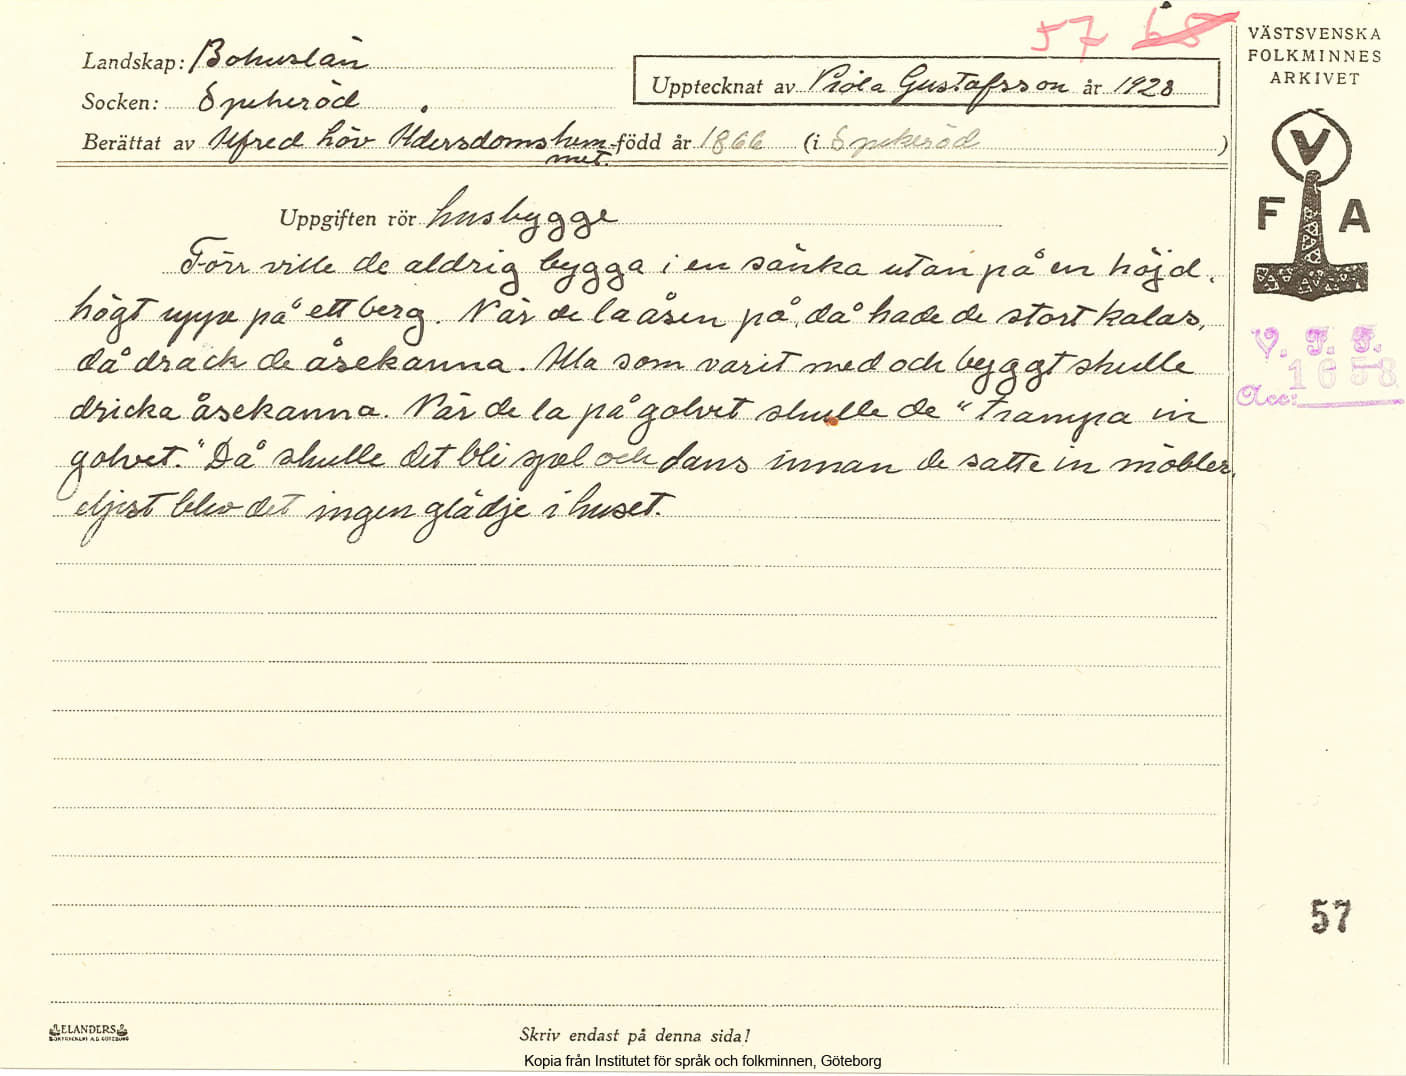 57 68
VÄSTSVENSKA
FOLKMINNES
ARKIVET
Landskap: Bohuslän
Upptecknat av Viola Gustafsson år 1928
Socken: Spekeröd
Berättat av Alfred Löv Ådersdomshem- född år 1866 (i Spekeröd )
met.
V
F A
Uppgiften rör husbygge
Förr ville de aldrig bygga i en sänka utan på en höjd,
högt uppe på ett berg. När de la åsen på, då hade de stort kalas,
då drack de åsekanna. Alla som varit med och byggt skulle
dricka åsekanna. När de la på golvet skulle de "trampa in
golvet." Då skulle det bli spel och dans innan de satte in möbler,
eljest blev det ingen glädje i huset.
V. F. F.
1658
Acc:
57
ELANDERS
BOKTRYCKERI A.B. GÖTEBORG
Skriv endast på denna sida!
Kopia från Institutet för språk och folkminnen, Göteborg